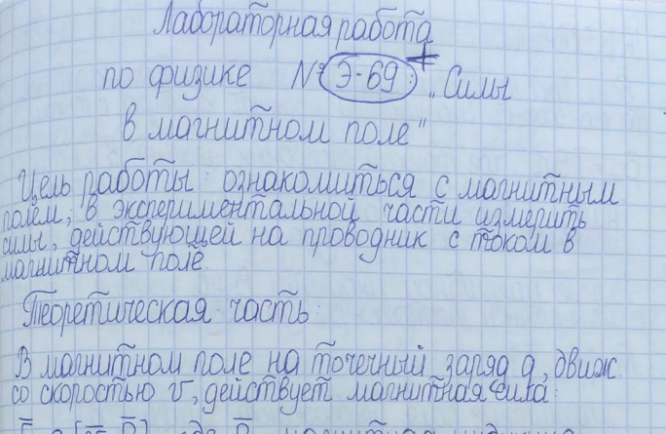 Лабораторная работа
по физике № Э-69: „Силы
в магнитном поле"
Цель работы: ознакомиться с магнитным
полем, в экспериментальной части измерить
силы, действующей на проводник с током в
магнитном поле
Теоретическая часть:
В магнитном поле на точечный заряд q, движ
со скоростью v, действует магнитная сила: